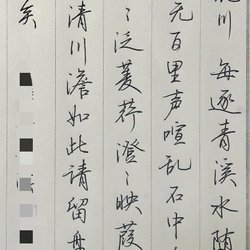 川 每逐青溪水 随
无百里声喧乱石中
〻泛菱荇澄〻映葭
清川澹如此请留
矣